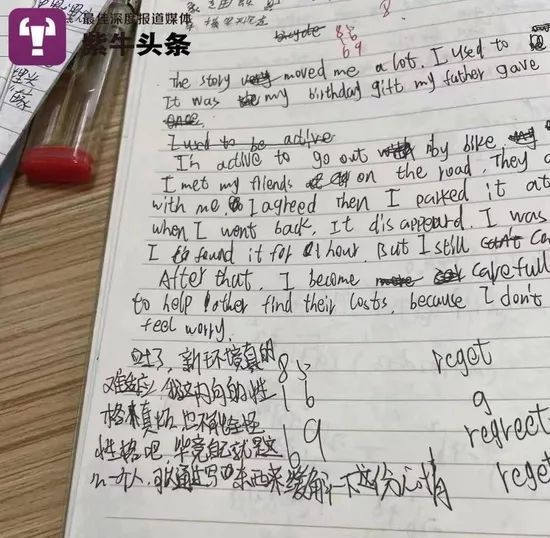 最佳深度报道媒体
紫牛头条
bicycle
86
69
8
The story moved me a lot. I used to
It was my birthday gift my father gave
once.
I used to be active
I'm active to go out by bike.
I met my friends on the road. They
with me. I agreed then I parked it at
when I went back, It disappeard. I was
I found it for 1 hour. But I still can't
After that, I become more carefull
to help other find their losts, because I don't
feel worry.
吐了,新环境真的
难适应,我这内向的性
格真
性格吧,毕竟自己就是这
么一个人,可以通过写东西来缓解一下这份心情
85
16
19
reget
g
regreet
reget